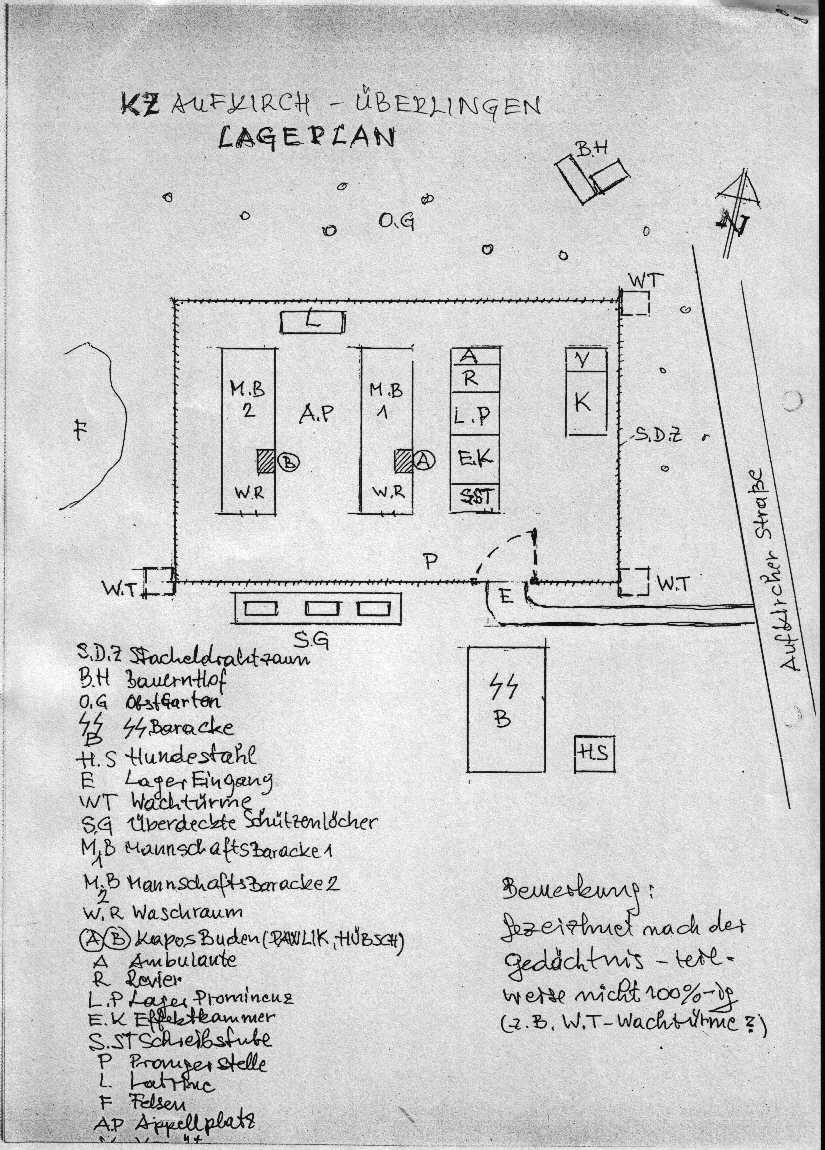 KZ AUFKIRCH – ÜBERLINGEN
LAGEPLAN
B.H
O.G
N
WT
L
A
V
M.B
2
A.P
M.B
1
R
K
L.P
F
S.D.Z
B
A
E.K
W.R
W.R
SST
P
W.T
W.T
E
S.G
Aufkircher Straße
SS
B
H.S
S.D.Z Stacheldrahtzaun
B.H BauernHof
O.G ObstGarten
SS B SS Baracke
H.S Hundestahl
E LagerEingang
WT Wachtürme
S.G Überdeckte Schützenlöcher
M.B 1 MannschaftsBaracke 1
M.B 2 MannschaftsBaracke 2
W.R Waschraum
A B KaposBuden (PAWLIK, HÜBSCH)
A Ambulante
R Revier
L.P Lager Prominenz
E.K Effektkammer
S.ST Schreibstube
P Prangerstelle
L Latrine
F Felsen
A.P Appellplatz
Bemerkung:
gezeichnet nach der
gedächtnis – teil-
weise nicht 100%-ig
(z.B. W.T – Wachtürme?)